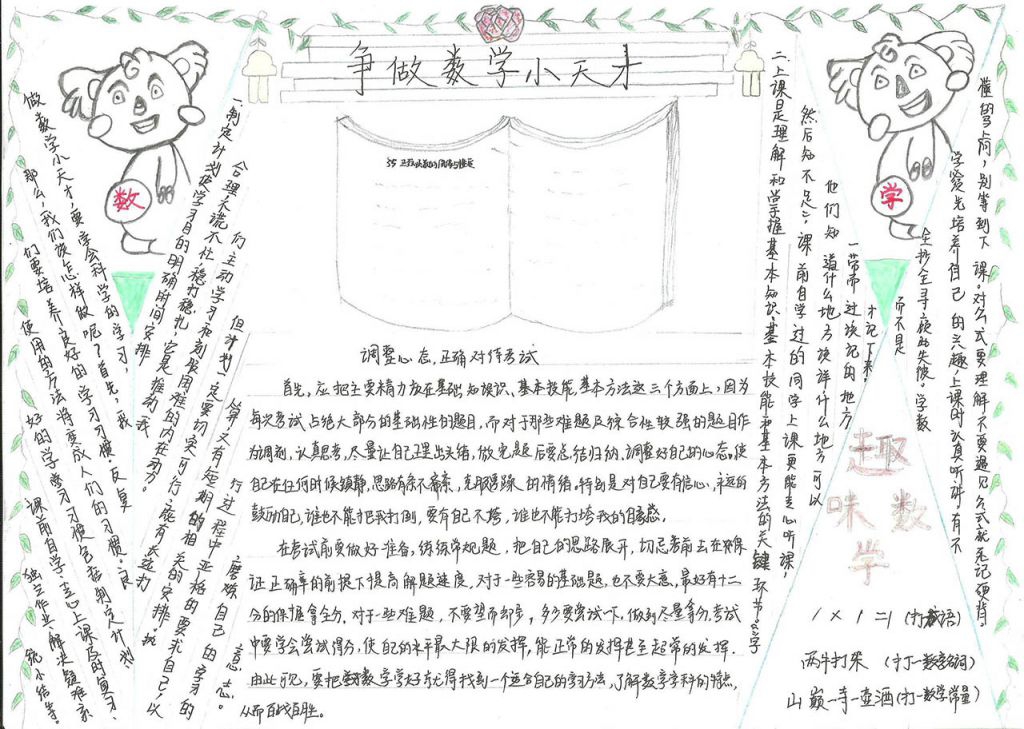 争做数学小天才
数
学
做数学小天才,要学会科学的学习,
那么,我们该怎样做呢?首先,我
们要培养良好的学习习惯。反复
使用的方法将变成人们的习惯。良
好的学习习惯包括制定计划、
课前自学、专心上课、及时复习、
独立作业、解决疑难、
小结等。
一制定计划使学习目的明确时间安排
合理不慌不忙,稳打稳扎,它是推动我
们主动学习和刻服困难的内在动力。
但计划一定要切实可行,既有长远打
算又有短期的相关的安排,执
行过程中严格的要求自己,以
磨炼自己的学习的
意志。
调整心态,正确对待考试
首先,应把主要精力放在基础知识、基本技能、基本方法这三个方面上,因为
每次考试占绝大部分的基础性的题目,而对于那些难题及综合性较强的题目作
为调剂,认真思考,尽量让自己理出头绪,做完题后要总结归纳。调整好自己的心态,使
自己在任何时候镇静,思路有条不紊,克服急躁的情绪。特别是对自己要有信心,永远的
鼓励自己,谁也不能把我打倒,要有自己不垮,谁也不能打垮我的自豪感。
在考试前要做好准备,练练常规题,把自己的思路展开,切忌考前去在确保
证正确率的前提下提高解题速度,对于一些容易的基础题,也不要大意,最好有十二
分的保握拿全分,对于一些难题,不要望而却步,多多要尝试一下,做到尽量拿分,考试
中要学会尝试得分,使自己的水平最大限的发挥,能正常的发挥甚至超常的发挥.
由此可见,要把数学学好尤得找到一个适合自己的学习方法,了解数学学科的特点,
从而百战百胜。
二上课是理解和掌握基本知识、基本技能和基本方法的关键环节。"学
然后知不足",课前自学过的同学上课更能专心听课,
他们知道什么地方该详什么地方可以
一带而过该记的地方
才记下来,
而不是
全抄全寻顾此失彼。学数
学爱先培养自己的兴趣,上课时认真听讲,有不
懂的当时问,别等到下课。对公式要理解不要遇见公式就死记硬背
趣
味数
学
1×1=1(打成语)
两牛打架(打一数学名词)
山巅一寺一壶酒(打一数学常量)